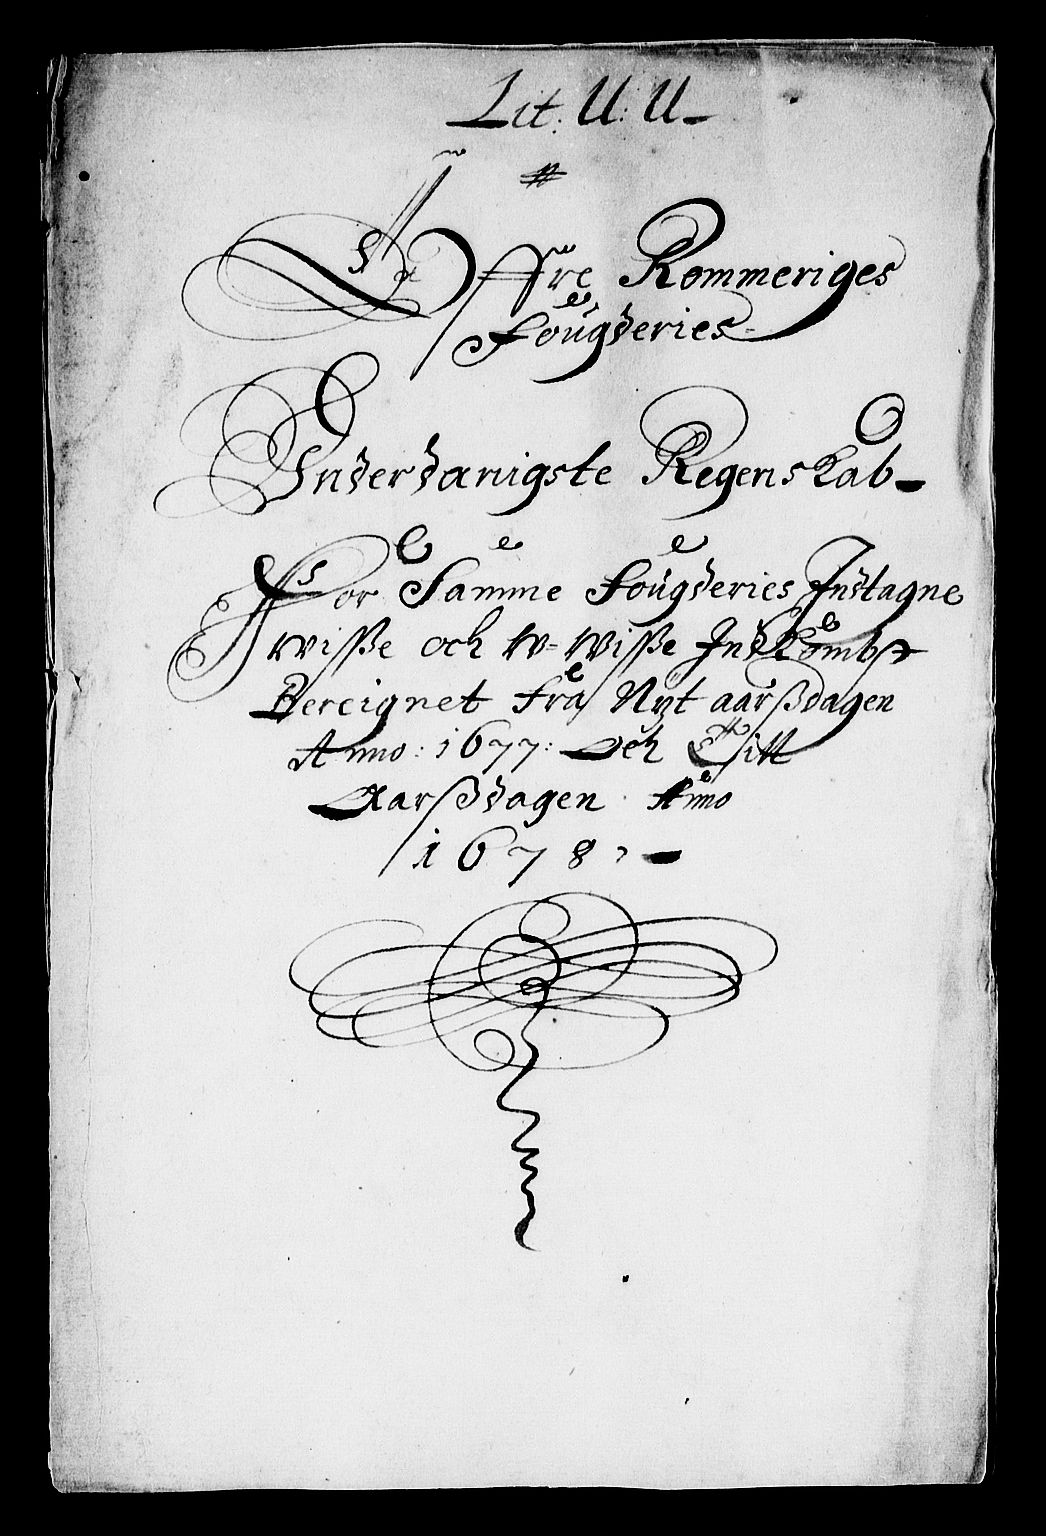 Lit: U: U
Øffre Rommeriges
Fougderies
Underdanigste Regenskab
For Samme Fougderies Indtagne
Wisße och W-Wisße Indkombst
Bereignet frå Nyt aarßdagen
Anno: 1677: Och Till
Aarßdagen Anno
1678